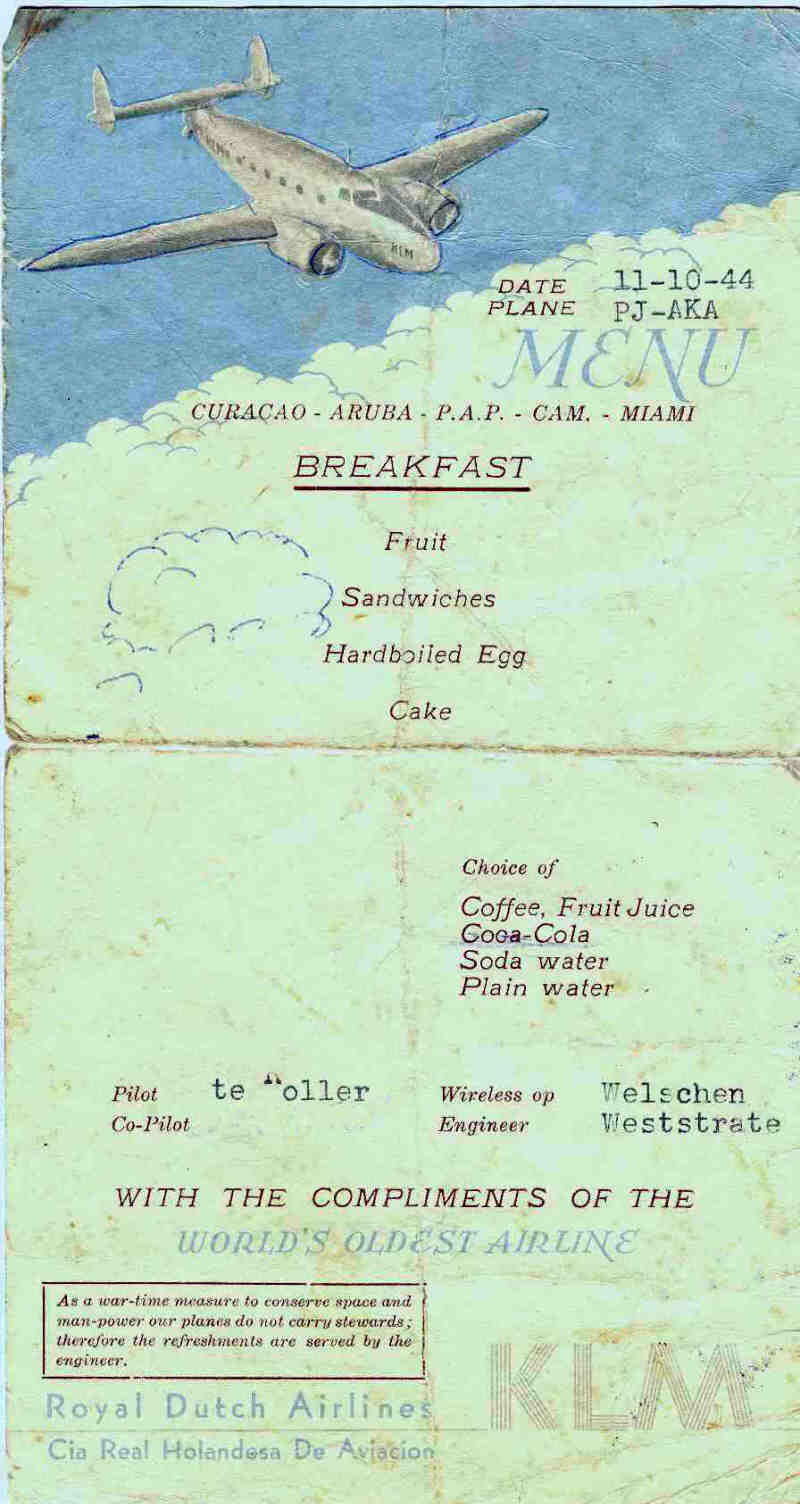 KLM
DATE 11-10-44
PLANE PJ-AKA
MENU
CURACAO - ARUBA - P.A.P. - CAM. - MIAMI
BREAKFAST
Fruit
Sandwiches
Hardboiled Egg
Cake
Choice of
Coffee, Fruit Juice
Coca-Cola
Soda water
Plain water
Pilot te
Wireless op Welschen
Co-Pilot
Engineer Weststrate
WITH THE COMPLIMENTS OF THE
WORLD'S OLDEST AIRLINE
As a war-time measure to conserve space and
man-power our planes do not carry stewards;
therefore the refreshments are served by the
engineer.
Royal Dutch Airlines
KLM
Cia Real Holandesa De Aviacion